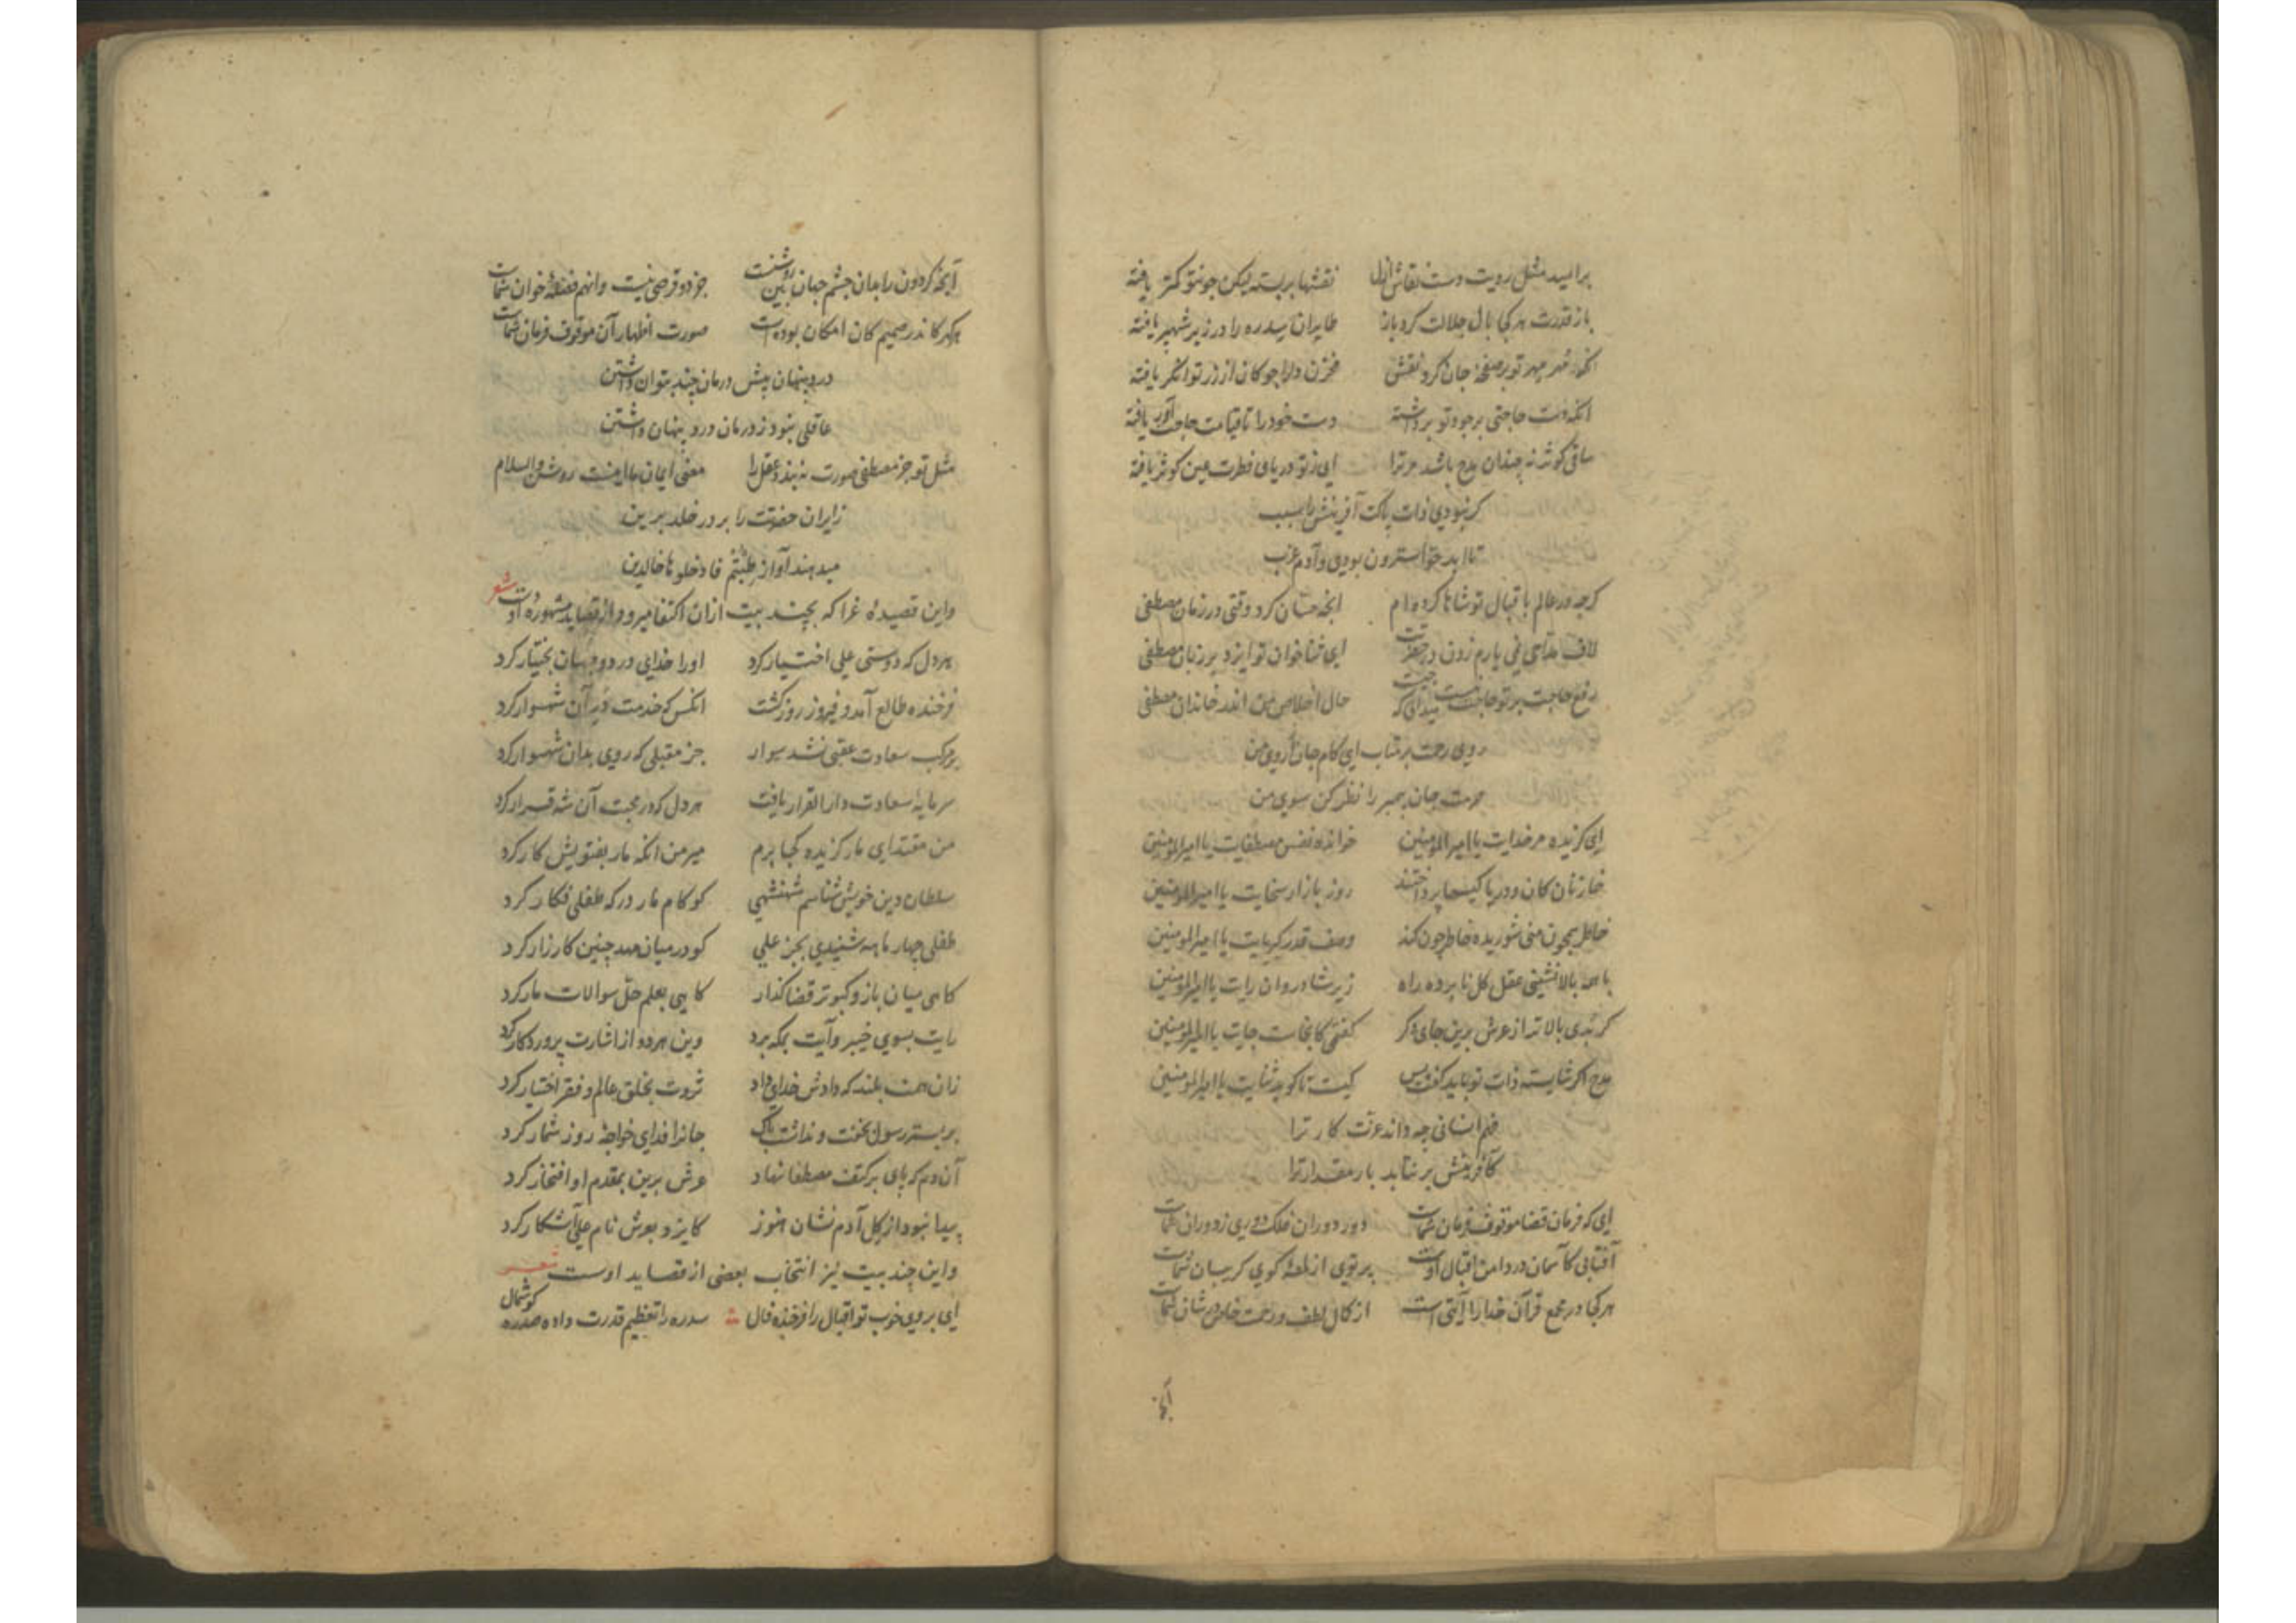 بر امید مثل رویت دست نقاش ازل نقشها بربسته لیکن چون تو کمتر یافته
باز قدرت هر کجا بال جلالت کرد باز طایران سدره را در زیر شهپر یافته
انکه مهر مهر تو بر صفحه جان کرد نقش مخزن دل را چو کان از زر توانکر یافته
انکه دست حاجتی بر جود تو برداشته دست خود را تا قیامت حاجت آور یافته
ساقی کوثر نه چندان مدح باشد مر ترا ای ز تو دریای فطرت عین کوثر یافته
کر نبودی ذات پاکت آفرینش را سبب
تا ابد حوا سترون بودی و آدم عزب
کرچه در عالم باقبال تو شاها کرده ام انچه حسان کرد وقتی در زمان مصطفی
لاف مداحی نمی یارم زدن در حضرتت ای ثناخوان تو ایزد بر زبان مصطفی
رفع حاجت بر تو حاجت نیست میدانی که چیست حال اخلاص من اندر خاندان مصطفی
روی رحمت بر متاب ای کام جان از روی من
حرمت جان پیمبر را نظر کن سوی من
ای کزیده مر خدایت یا امیرالمؤمنین خوانده نفس مصطفایت یا امیرالمؤمنین
خازنان کان و دریا کیسها پرداختند روز بازار سخایت یا امیرالمؤمنین
خاطر همچون منی شوریده خاطر چون کند وصف قدر کبریایت یا امیرالمؤمنین
با همه بالانشینی عقل کل نابرده راه زیر شادروان رایت یا امیرالمؤمنین
کر بدی بالاتر از عرش برین جای دکر کفتمی کانجاست جایت یا امیرالمؤمنین
مدح اکر شایسته ذات تو باید کفت و بس کیست تا کوید ثنایت یا امیرالمؤمنین
فهم انسانی چه داند عزت کار ترا
کافرینش بر نتابد بار مقدار ترا
ای که فرمان قضا موقوف فرمان شماست دور دوران فلک دوری ز دوران شماست
آفتابی کآسمان در دامن اقبال اوست پرتوی از لمعهٔ کوی کریبان شماست
هر کجا در مجمع قرآن خدا را آیتی است از کمال لطف و رحمت خاص در شان شماست
آنچه
آنچه کردون را بدان چشم جهان بین روشنست جز دو قرصی نیست وانهم فضلهٔ خوان شماست
هر کهر کاندر صمیم کان امکان بوده است صورت اظهار آن موقوف فرمان شماست
درد پنهان پیش درمان چند بتوان داشتن
عاقلی نبود ز درمان درد پنهان داشتن
مثل تو جز مصطفی صورت نبندد عقل را معنی ایمان ما اینست روشن والسلام
زایران حضرتت را بر در خلد برین
میدهند آواز طبتم فادخلوها خالدین
واین قصیدهٔ غرا که بچند بیت ازان اکتفا میرود از قصاید مشهورهٔ اوست شعر
هر دل که دوستی علی اختیار کرد او را خدای در دو جهان بختیار کرد
فرخنده طالع آمد و فیروز روز کشت انکس که خدمت در آن شهسوار کرد
بر مرکب سعادت عقبی نشد سوار جز مقبلی که روی بدان شهسوار کرد
سرمایهٔ سعادت دارالقرار یافت هر دل که در محبت آن شه قرار کرد
من مقتدای مار کزیده کجا برم میر من انکه مار بفتویش کار کرد
سلطان دین خویش شناسم شهنشهی کو کام مار درکه طفلی فکار کرد
طفلی چهار ماهه شنیدی بجز علی کو در میان مهد چنین کارزار کرد
کاهی میان باز و کبوتر قضا کذار کاهی بعلم حلّ سوالات مار کرد
رایت بسوی خیبر و آیت بمکه برد وین هر دو از اشارت پروردکار کرد
زان همت بلند که دادش خدای داد ثروت بخلق عالم و فقر اختیار کرد
بر بستر رسول بخفت و نداشت باک جانرا فدای خواجهٔ روز شمار کرد
آن دم که پای بر کتف مصطفا نهاد عرش برین بمقدم او افتخار کرد
پیدا نبود از کل آدم نشان هنوز کایزد بعرش نام علی آشکار کرد
واین چند بیت نیز انتخاب بعضی از قصاید اوست شعر
ای بروی خوب تو اقبال را فرخنده فال سدره را تعظیم قدرت داده صدره کوشمال